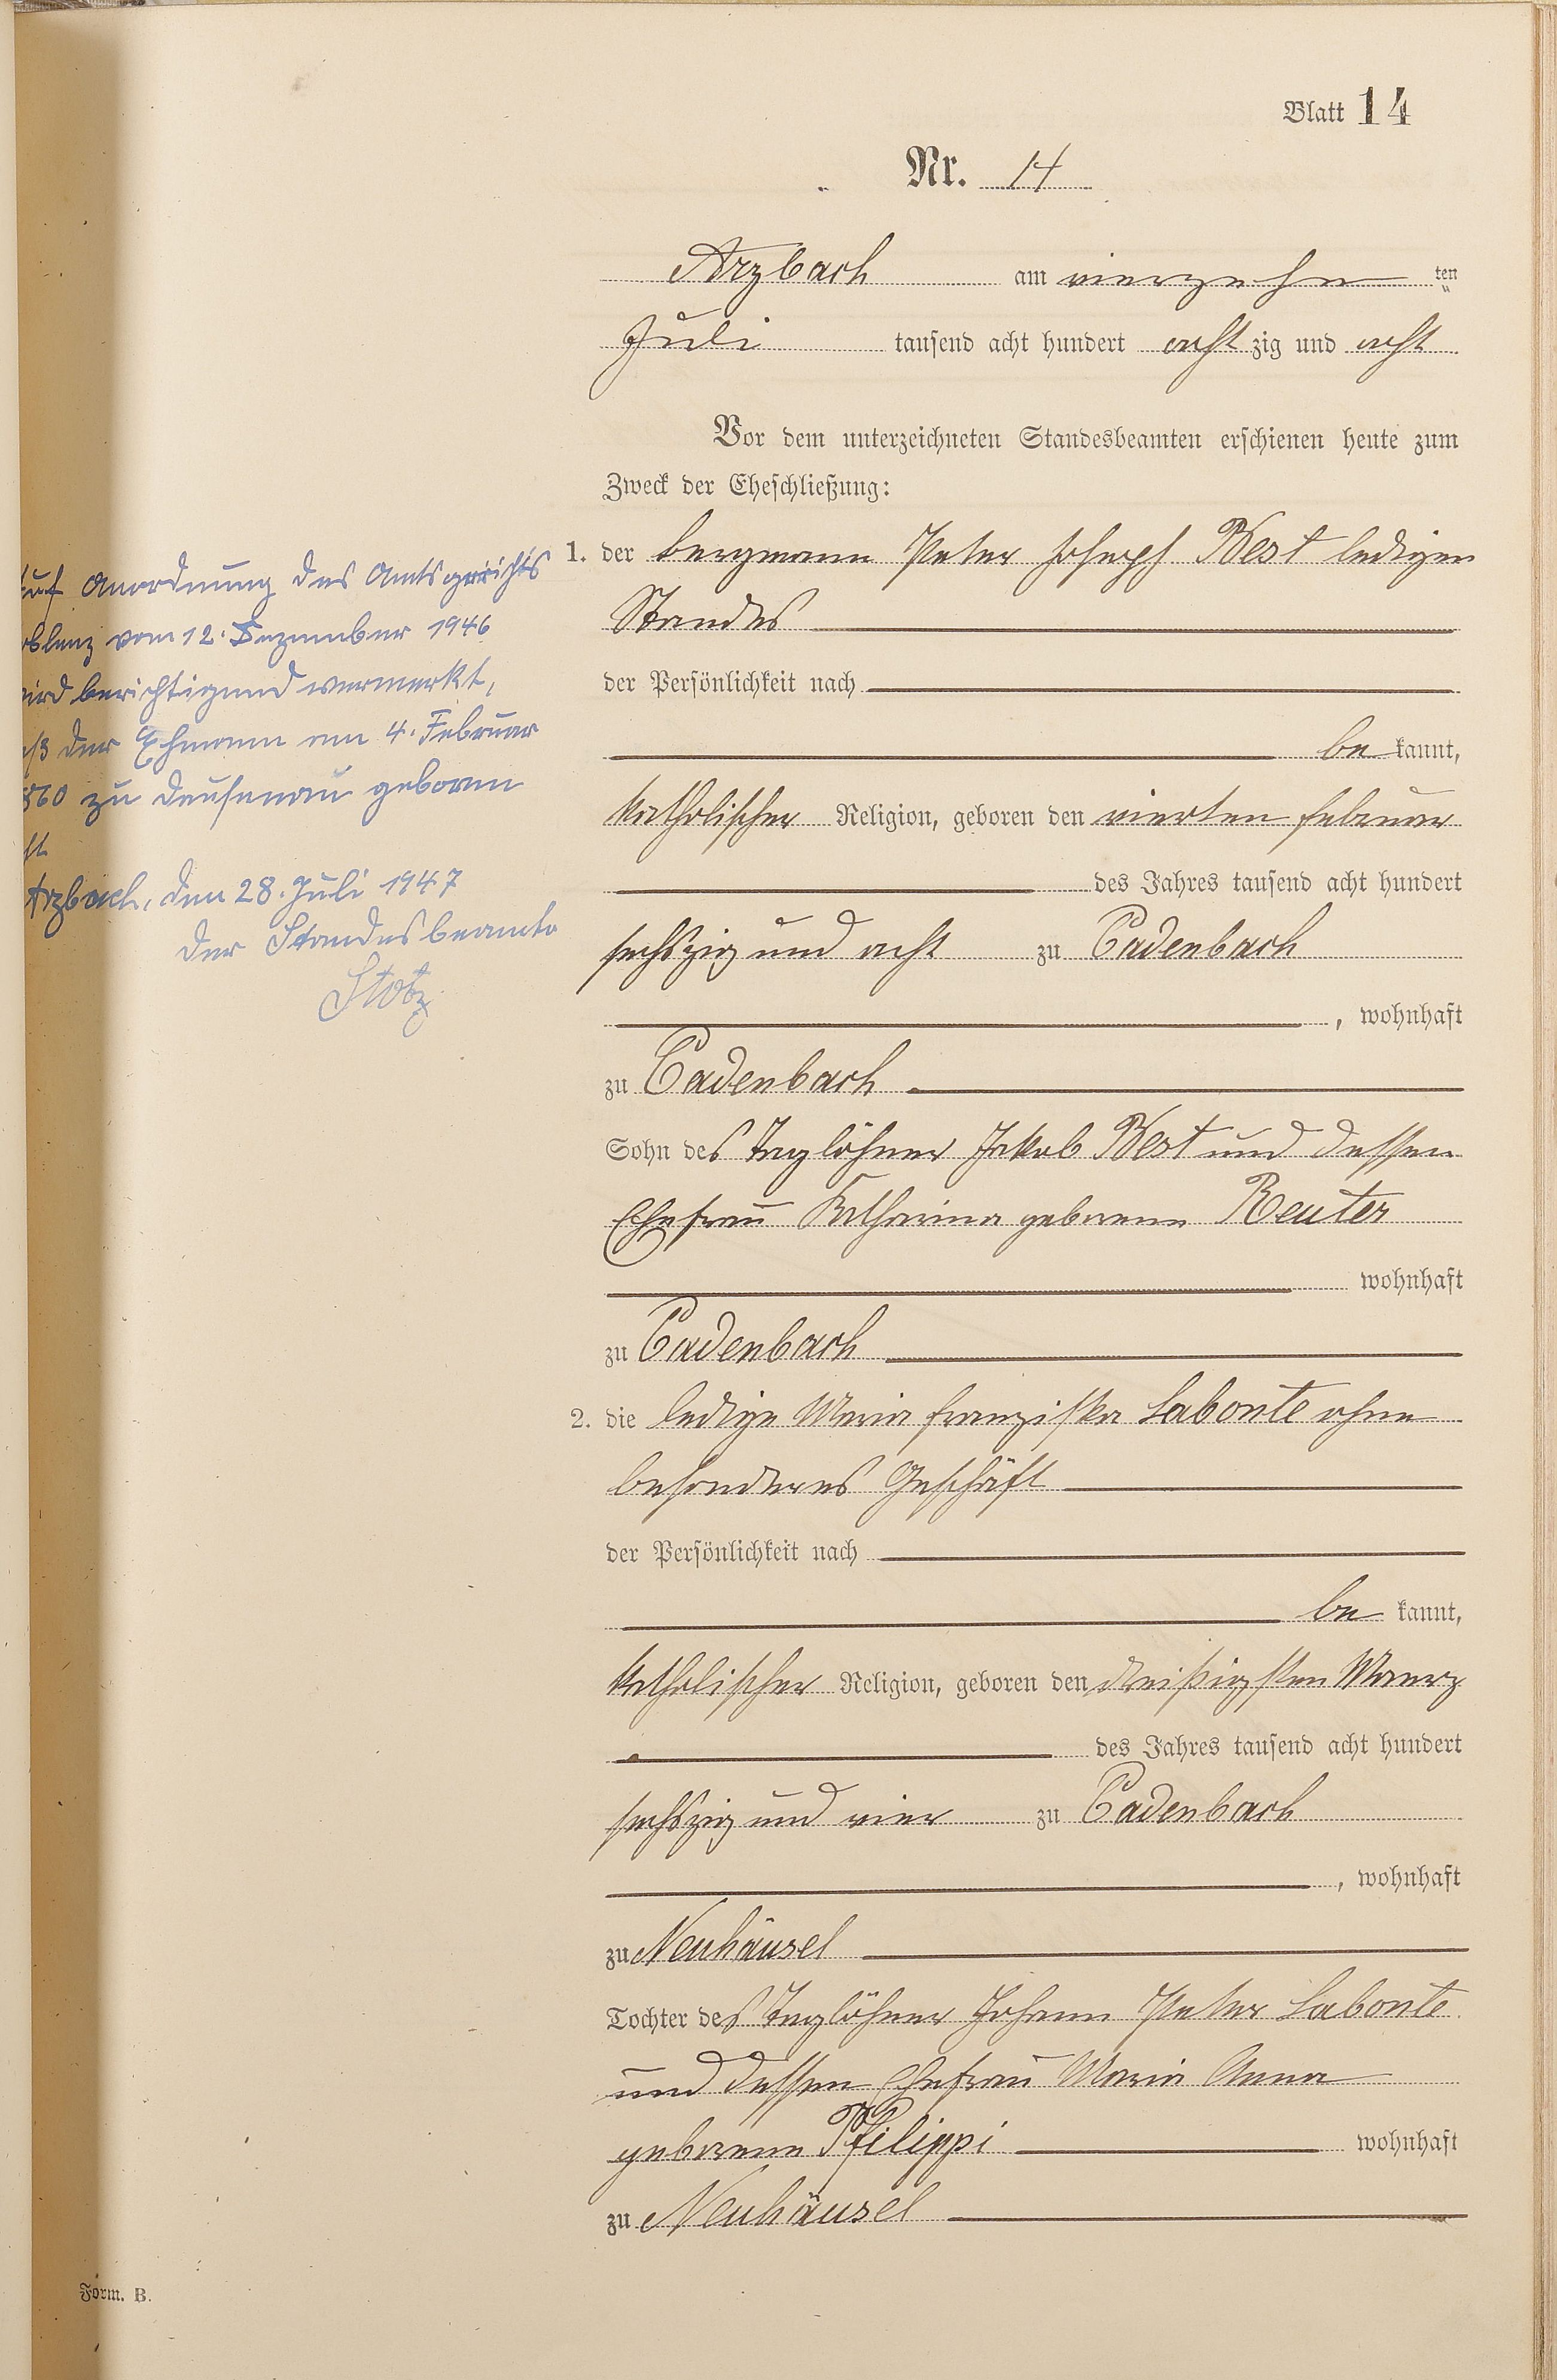 Blatt 14
Nr. 14
Arzbach am vierzehn ten
Juli tausend acht hundert acht zig und acht
Vor dem unterzeichneten Standesbeamten erschienen heute zum
Zweck der Eheschließung:
1. der Bergmann Peter Joseph Best ledigen
Standes
der Persönlichkeit nach
be kannt,
katholischer Religion, geboren den vierten Februar
des Jahres tausend acht hundert
sechszig und acht zu Cadenbach
, wohnhaft
zu Cadenbach
Sohn des Taglöhner Jakob Best und dessen
Ehefrau Katharina geborene Reuter
wohnhaft
zu Cadenbach
2. die ledige Maria Franziska Labonte ohne
besonderes Geschäft
der Persönlichkeit nach
be kannt,
katholischer Religion, geboren den dreißigsten Maerz
des Jahres tausend acht hundert
sechszig und vier zu Cadenbach
, wohnhaft
zu Neuhäusel
Tochter des Taglöhner Johann Peter Labonte
und dessen Ehefrau Maria Anna
geborene Philippi wohnhaft
zu Neuhäusel
Form. B.
uf Anordnung des Amtsgerichts
oblenz vom 12. Dezember 1946
ird berichtigend vermerkt,
aß der Ehmann am 4. Februar
860 zu Dausenau geboren
st
Arzbach, den 28. Juli 1947
Der Standesbeamte
Stotz